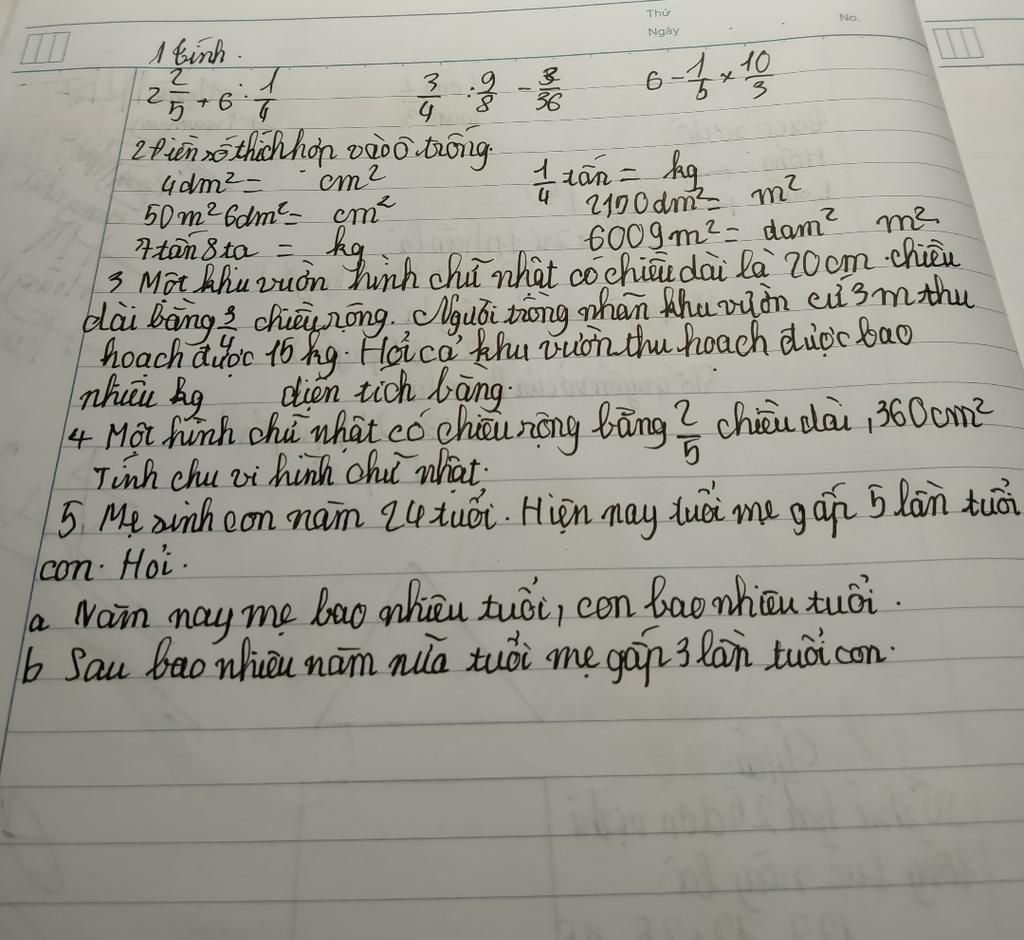 Thứ
No.
Ngày
1 tính.
2 2/5 + 6 : 1/4   3/4 : 9/8 - 3/36   6 - 1/5 × 10/3
2 điền số thích hợp vào ô trống.
4dm² = cm²   1/4 tấn = kg
50m² 6dm² = cm²   2100dm² = m²
7 tấn 8 tạ = kg   6009m² = dam² m²
3 Một khu vườn hình chữ nhật có chiều dài là 20cm. chiều
dài bằng 3/4 chiều rộng. Người trồng nhãn khu vườn cứ 3m thu
hoạch được 15 kg. Hỏi cả khu vườn thu hoạch được bao
nhiêu kg   diện tích bằng.
4 Một hình chữ nhật có chiều rộng bằng 2/5 chiều dài, 360cm²
Tính chu vi hình chữ nhật.
5. Mẹ sinh con năm 24 tuổi. Hiện nay tuổi mẹ gấp 5 lần tuổi
con. Hỏi.
a Năm nay mẹ bao nhiêu tuổi, con bao nhiêu tuổi.
b Sau bao nhiêu năm nữa tuổi mẹ gấp 3 lần tuổi con.